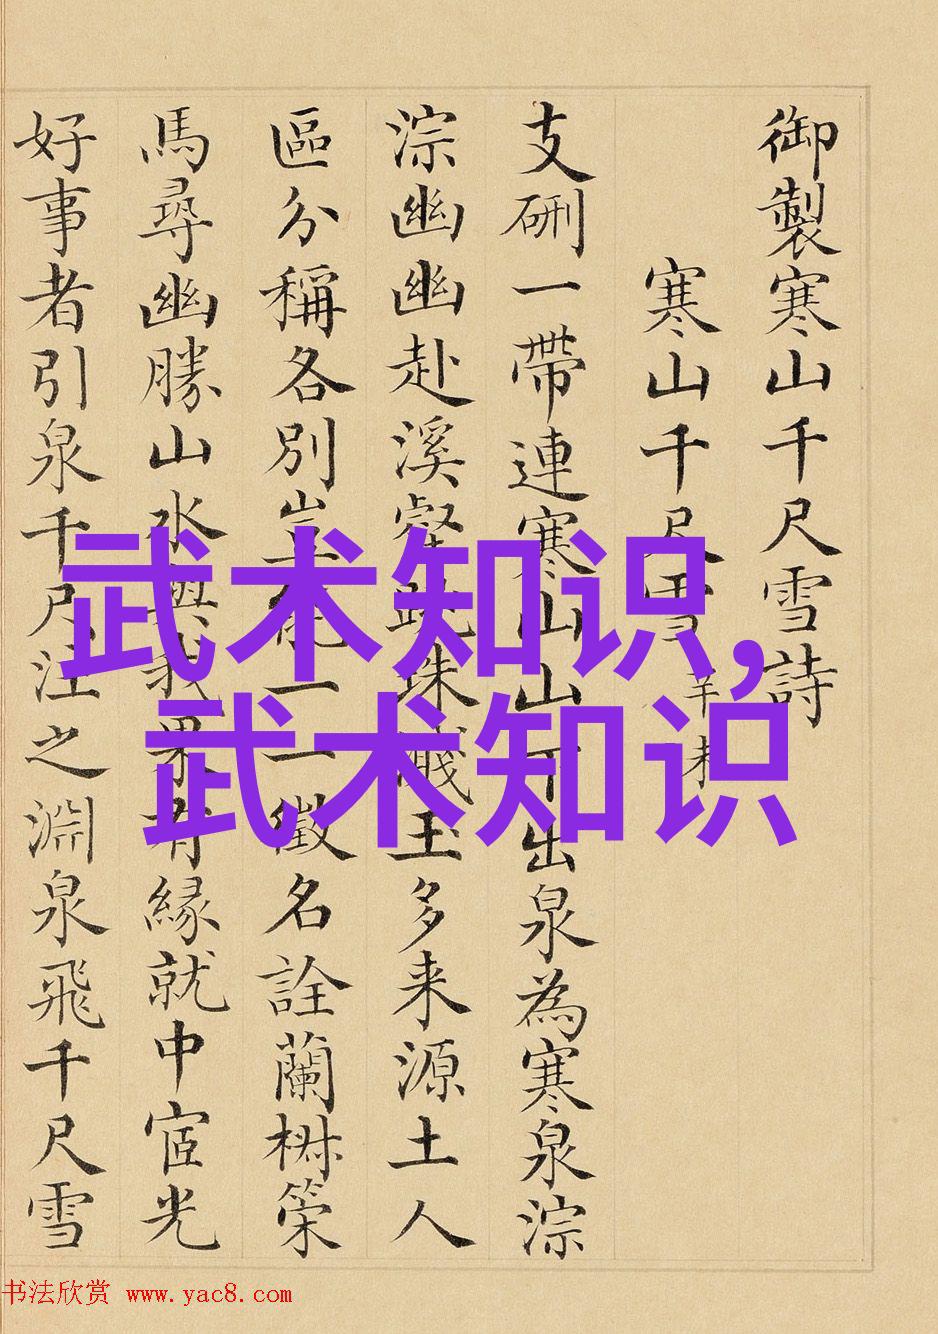 御製寒山千尺雪詩
寒山千尺雪 辛未
支硎一帶連寒山山下出泉為寒泉淙
淙幽幽赴溪壑跳珠濺玉多来源土人
區分稱各別豈能一一徵名詮蘭樹築
馬尋幽勝山水與我果有緣就中宦光
好事者引泉千尺注之淵泉飛千尺雪
武术知识,
武术知识
书法欣赏 www.yac8.com